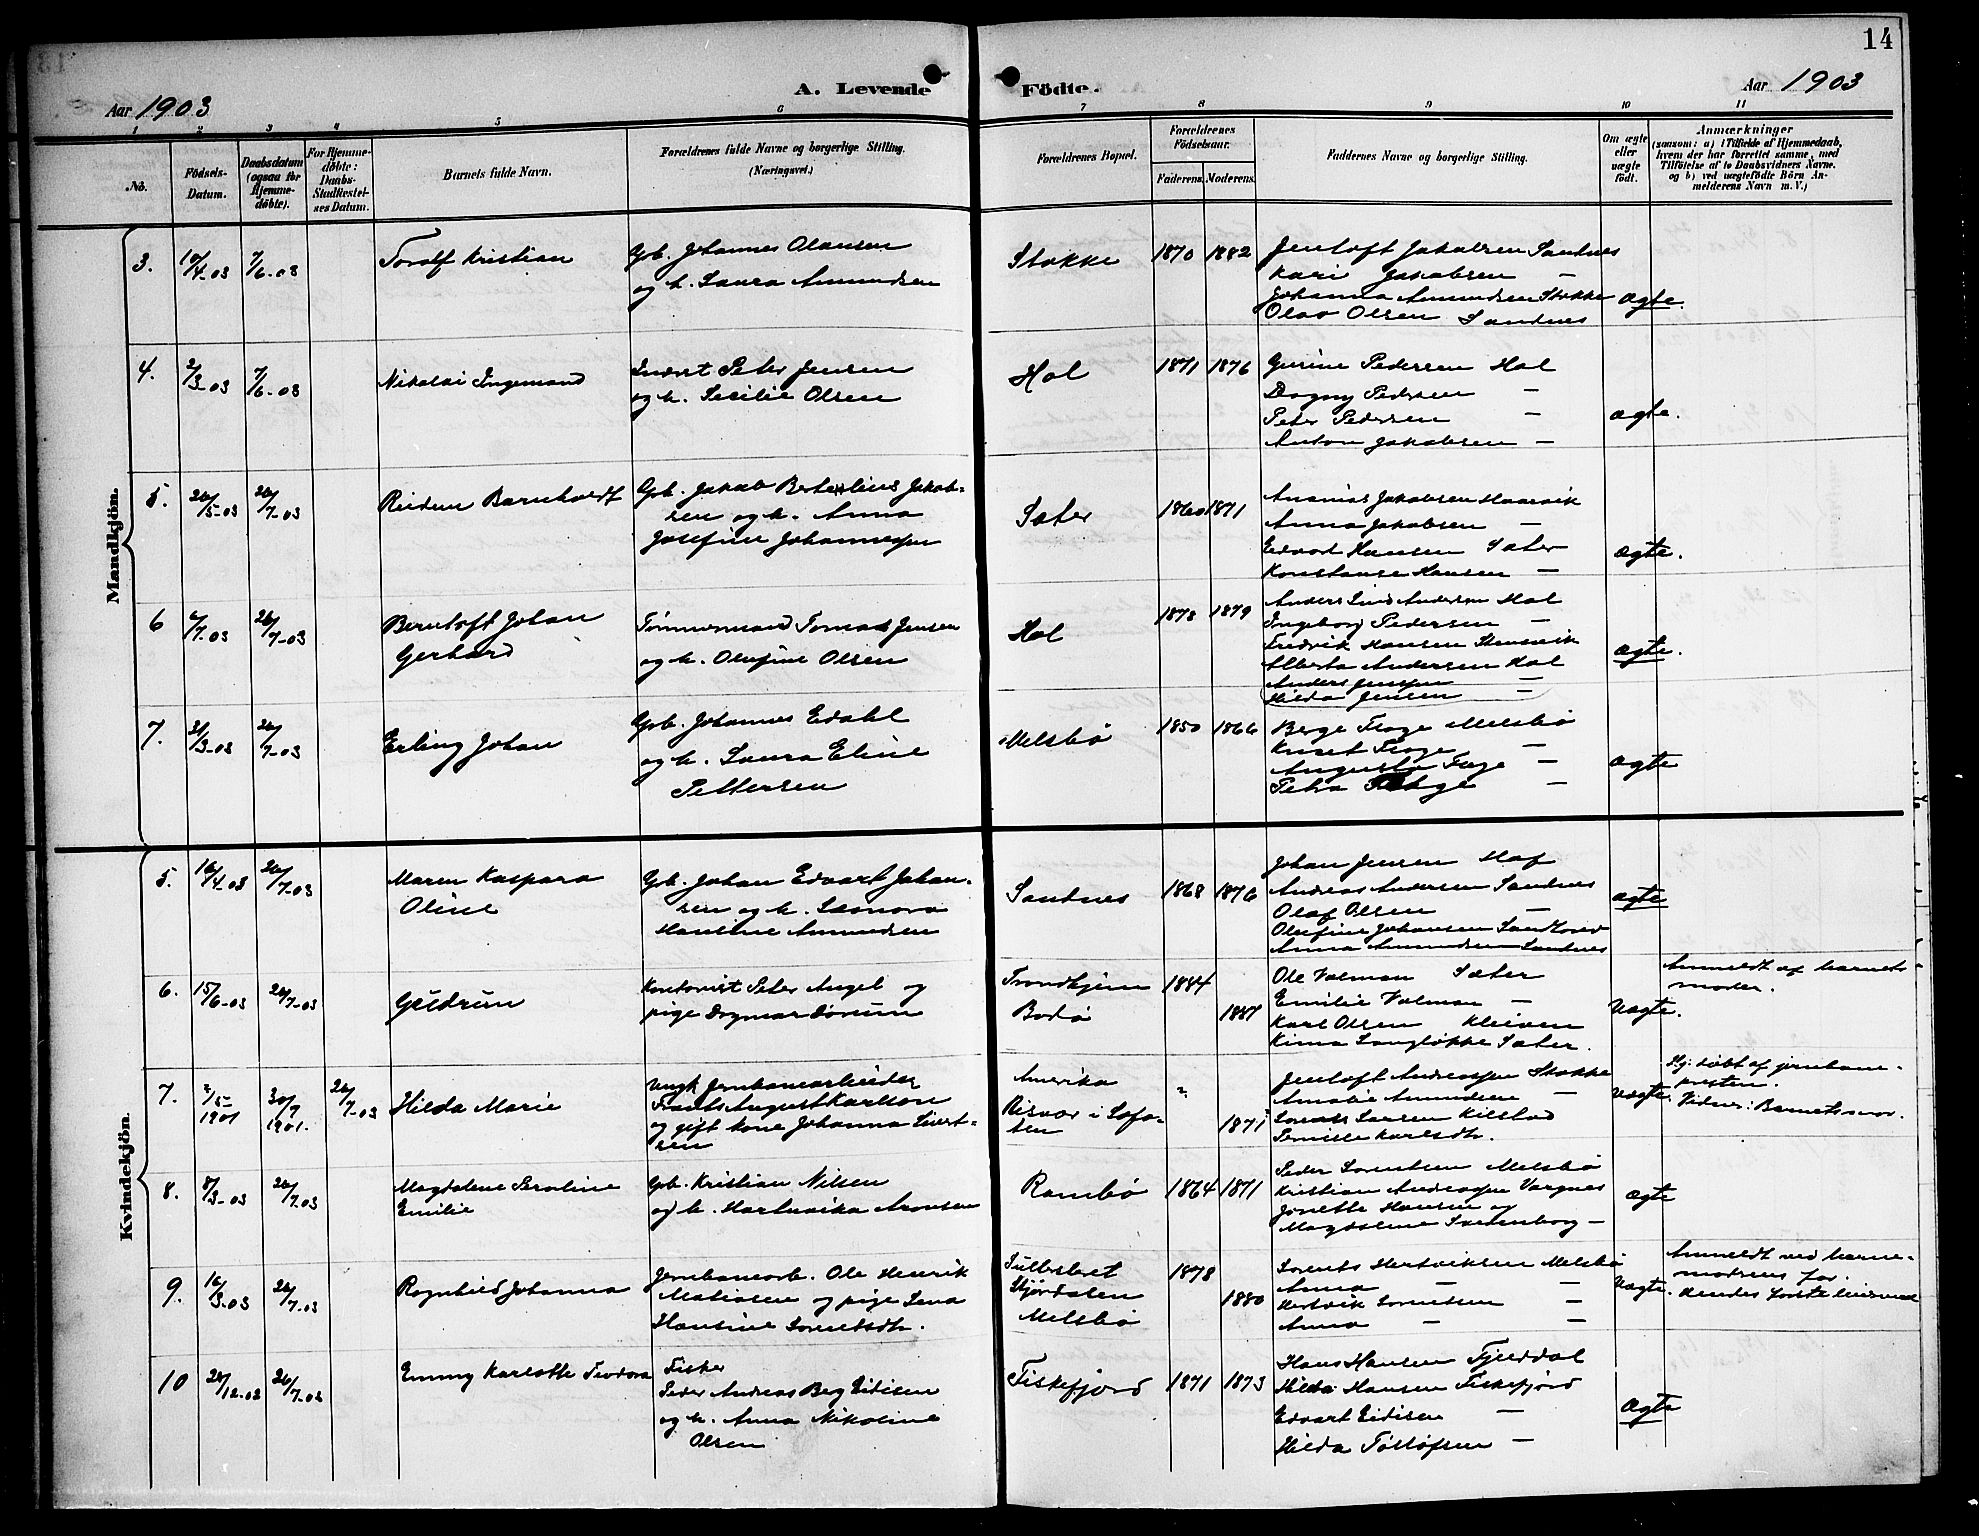 14
Aar 1903
A. Levende
Födte.
Aar 1903
1 2 3 4 5 6 7 8 9 10 11
No.
Födsels-
Datum.
Daabsdatum
(ogsaa for
Hjemme-
döbte).
For Hjemme-
döbte:
Daabs-
Stadfæstel-
ses Datum.
Barnets fulde Navn.
Forældrenes fulde Navne og borgerlige Stilling.
(Næringsvei.)
Forældrenes Bopæl.
Forældrenes
Födselsaar.
Faderens. Moderens.
Faddernes Navne og borgerlige Stilling.
Om ægte
eller
uægte
født.
Anmærkninger
(saasom: a) i Tilfælde af Hjemmedaab,
hvem der har forrettet samme, med
Tilföielse af to Daabsvidners Navne.
og b) ved uægtefödte Börn An-
melderens Navn m. V.)
Mandkjön.
3. 10/4-03 7/6-03 Toralf Kristian
Gb. Johannes Olausen
og h. Laura Amundsen
Stokke 1870 1882
Jentoft Jakobsen Sandnes
Kari Jakobsen —
Johanna Amundsen Stokke
Olav Olsen Sandnes
ægte.
4. 2/3-03 7/6-03 Nikolai Ingemand
Inderst Peter Jensen
og h. Secilie Olsen
Hol 1871 1876
Gurine Pedersen Hol
Dagny Pedersen —
Peter Pedersen —
Anton Jakobsen —
ægte.
5. 26/5-03 26/7-03 Reidun Barnholdt
Gb. Jakob Bertelius Jakob-
sen og h. Anna
Josefine Johannessen
Sæter 1860 1871
Ananias Jakobsen Haarvik
Anna Jakobsen —
Edvard Hansen Sæter
Konstanse Hansen —
ægte.
6 6/7.03 26/7-03 Berntoft Johan
Gerhard
Tømmermand Tomas Jensen
og h. Olufine Olsen
Hol 1878 1879
Anders Lind Andersen Hol
Ingeborg Pedersen —
Fredrik Hansen Stensvik
Alberta Andersen Hol
Anders Jenssen —
Hilda Jensen —
ægte.
7. 21/3-03 26/7-03 Erling Johan
Gb. Johannes Edahl
og h. Laura Eline
Pettersen
Melsbö 1850 1866
Berge Floge Melsbö
Knut Floge —
Augusta Floge —
Petra Floge —
ægte
Kvindekjön.
5. 16/4.03 26/7.03 Maren Kaspara
Oline
Gb. Johan Edvart Johan-
sen og h. Leonora
Hansine Amundsen
Sandnes 1868 1876
Johan Jensen Hof
Andreas Andersen Sandnes
Olaf Olsen —
Olufine Johansen
Anna Amundsen Sandnes
ægte
6. 15/6-03 26/7-03 Gudrun
Kontorist Peter Angel og
pige Dagmar Dörum
Trondhjem 1884
Bodö 1887
Ole Valman Sæter
Emilie Valman —
Karl Olsen Kleiven
Kima Langløkke Sæter.
Uægte.
Anmeldt af barnets
moder.
7. 7/5-1901 30/7 1901. 26/7-03 Hilda Marie
Ungk. Jernbanearbeider
Frants August Karlson
og gift kone Johanna Sivert-
sen
Amerika "
Risvær i Lofo-
ten 1871
Jentoft Andreassen Stokke
Amalie Amundsen —
Lorents Larsen Kilstad
Pernille Karlsdtr.
Uægte.
Hj. döbt af jernbane-
presten.
Vidner: Barnets mor.
8. 8/3-03 26/7.03 Magdalene Peroline
Emilie
Gb. Kristian Nilsen
og h. Hartvika Aronsen
Rambö 1864 1871
Peder Lorentsen Melsbö
Kristian Andreassen Vargnes
Jonette Hansen og
Magdalene Svedenborg —
ægte
9. 16/3-03 26/7.03 Ragnhild Johanna
Jernbanearb. Ole Henrik
Matiasen og pige Lena
Hansine Lorentsdtr.
Stjördalen 1878
Melsbö 1880
Lorents Hertviksen Melsbö
Anna — —
Hertvik Lorentsen —
Anna — —
Uægte.
Anmeldt ved barne-
modrens far.
Hendes første leiermaal
10 24/12-02 26/7-03 Emmy Karlotte Teodora
Fisker
Peder Andreas Berg Eidisen
og h. Anna Nikoline
Olsen
Fiskefjord 1871 1873
Hans Hansen Fjelddal
Hilda Hansen Fiskefjord
Edvart Eidisen —
Hilda Tollofsen —
ægte